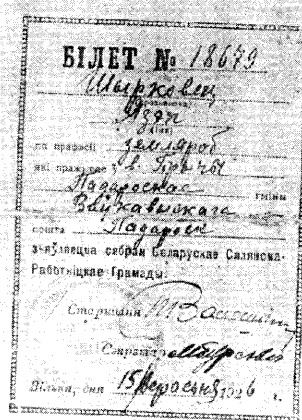 БІЛЕТ № 18679
Шырковец
Язэп
па прафэсіі земляроб
які пражывае ў в.
Падароскае гміны
Ваўкавыскага
пошта Падароск
зьяўляецца сябрам Беларускае Сялянска-
Работніцкае Грамады.
Старшыня
Сакратар
Вільня, дня 15 Верасьня 1926 г.